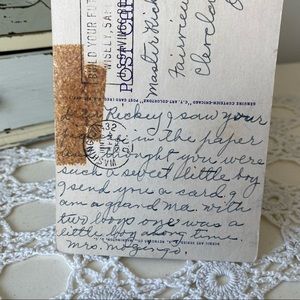 BUILD YOUR FUT
WISELY, SA
SAVINGS BO
POST CAR
Master Rick
Fairview
Clevelan
GENUINE CURTEICH-CHICAGO "C.T. ART-COLORTONE" POST CARD
Dear Rickey I saw your
in the paper
thought you were
such a sweet little boy
I send you a card. I
am a grand ma. with
two boys one was a
little boy along time.
Mrs.